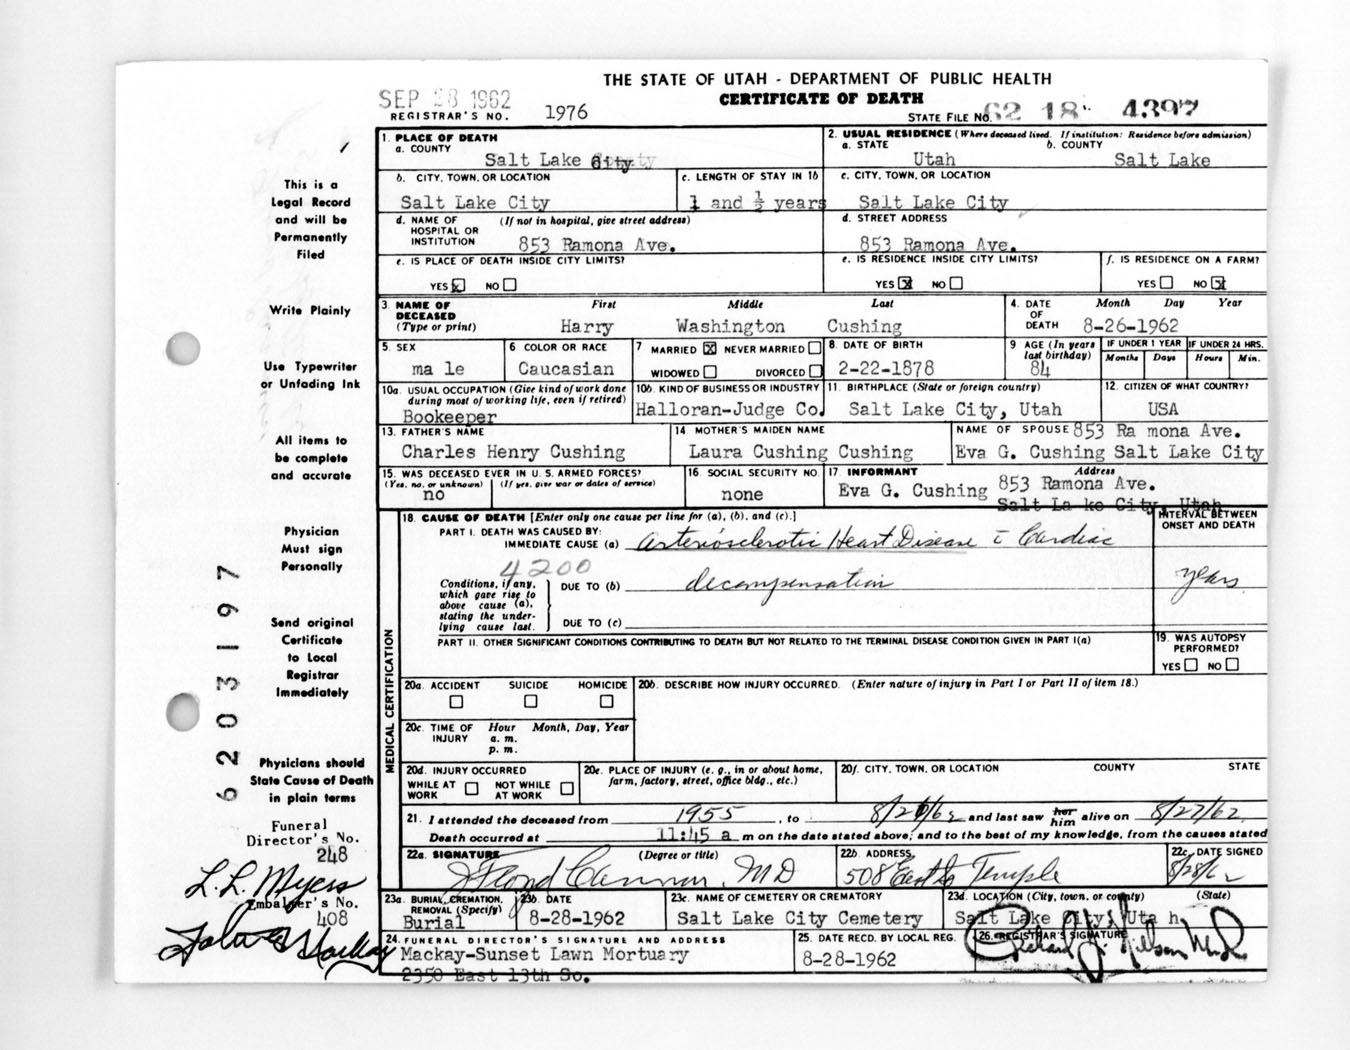 THE STATE OF UTAH - DEPARTMENT OF PUBLIC HEALTH
SEP 28 1962
CERTIFICATE OF DEATH
REGISTRAR'S NO. 1976
STATE FILE NO. 62 18 4397
1. PLACE OF DEATH
a. COUNTY
Salt Lake
2. USUAL RESIDENCE (Where deceased lived. If institution: Residence before admission)
a. STATE b. COUNTY
Utah Salt Lake
This is a
Legal Record
and will be
Permanently
Filed
b. CITY, TOWN, OR LOCATION
Salt Lake City
c. LENGTH OF STAY IN 1b
1 and ½ years
c. CITY, TOWN, OR LOCATION
Salt Lake City
d. NAME OF (If not in hospital, give street address)
HOSPITAL OR
INSTITUTION 853 Ramona Ave.
d. STREET ADDRESS
853 Ramona Ave.
e. IS PLACE OF DEATH INSIDE CITY LIMITS?
YES NO
e. IS RESIDENCE INSIDE CITY LIMITS?
YES NO
f. IS RESIDENCE ON A FARM?
YES NO
Write Plainly
3. NAME OF First Middle Last
DECEASED
(Type or print) Harry Washington Cushing
4. DATE Month Day Year
OF
DEATH 8-26-1962
Use Typewriter
or Unfading Ink
5. SEX
ma le
6 COLOR OR RACE
Caucasian
7 MARRIED NEVER MARRIED
WIDOWED DIVORCED
8. DATE OF BIRTH
2-22-1878
9 AGE (In years
last birthday)
84
IF UNDER 1 YEAR IF UNDER 24 HRS.
Months Days Hours Min.
10a. USUAL OCCUPATION (Give kind of work done
during most of working life, even if retired)
Bookeeper
10b. KIND OF BUSINESS OR INDUSTRY
Halloran-Judge Co.
11. BIRTHPLACE (State or foreign country)
Salt Lake City, Utah
12. CITIZEN OF WHAT COUNTRY?
USA
All items to
be complete
and accurate
13. FATHER'S NAME
Charles Henry Cushing
14 MOTHER'S MAIDEN NAME
Laura Cushing Cushing
NAME OF SPOUSE 853 Ra mona Ave.
Eva G. Cushing Salt Lake City
15. WAS DECEASED EVER IN U. S. ARMED FORCES?
(Yes, no, or unknown) (If yes, give war or dates of service)
no
16. SOCIAL SECURITY NO.
none
17 INFORMANT Address
Eva G. Cushing 853 Ramona Ave.
Salt La ke City, Utah
Physician
Must sign
Personally
MEDICAL CERTIFICATION
18. CAUSE OF DEATH [Enter only one cause per line for (a), (b), and (c).]
INTERVAL BETWEEN
ONSET AND DEATH
PART I. DEATH WAS CAUSED BY:
IMMEDIATE CAUSE (a) Arteriosclerotic Heart Disease c̄ Cardiac
4200
Conditions, if any,
which gave rise to
above cause (a),
stating the under-
lying cause last.
DUE TO (b) decompensation
years
DUE TO (c)
PART II. OTHER SIGNIFICANT CONDITIONS CONTRIBUTING TO DEATH BUT NOT RELATED TO THE TERMINAL DISEASE CONDITION GIVEN IN PART I(a)
19. WAS AUTOPSY
PERFORMED?
YES NO
Send original
Certificate
to Local
Registrar
Immediately
6203197
20a. ACCIDENT SUICIDE HOMICIDE
20b. DESCRIBE HOW INJURY OCCURRED. (Enter nature of injury in Part I or Part II of item 18.)
20c. TIME OF Hour Month, Day, Year
INJURY a. m.
p. m.
Physicians should
State Cause of Death
in plain terms
20d. INJURY OCCURRED
WHILE AT NOT WHILE
WORK AT WORK
20e. PLACE OF INJURY (e. g., in or about home,
farm, factory, street, office bldg., etc.)
20f. CITY, TOWN, OR LOCATION COUNTY STATE
21. I attended the deceased from 1955, to and last saw her him alive on 8/27/62
Death occurred at 11:45 a m on the date stated above; and to the best of my knowledge, from the causes stated
Funeral
Director's No.
248
L. L. Myers
Embalmer's No.
408
22a. SIGNATURE (Degree or title)
J Floyd Cannon, MD
22b. ADDRESS
508 East So Temple
22c. DATE SIGNED
8/28/62
23a. BURIAL, CREMATION,
REMOVAL (Specify)
Burial
23b. DATE
8-28-1962
23c. NAME OF CEMETERY OR CREMATORY
Salt Lake City Cemetery
23d. LOCATION (City, town, or county) (State)
Salt Lake City, Uta h
24. FUNERAL DIRECTOR'S SIGNATURE AND ADDRESS
Mackay-Sunset Lawn Mortuary
2350 East 13th So.
25. DATE RECD. BY LOCAL REG.
8-28-1962
26. REGISTRAR'S SIGNATURE